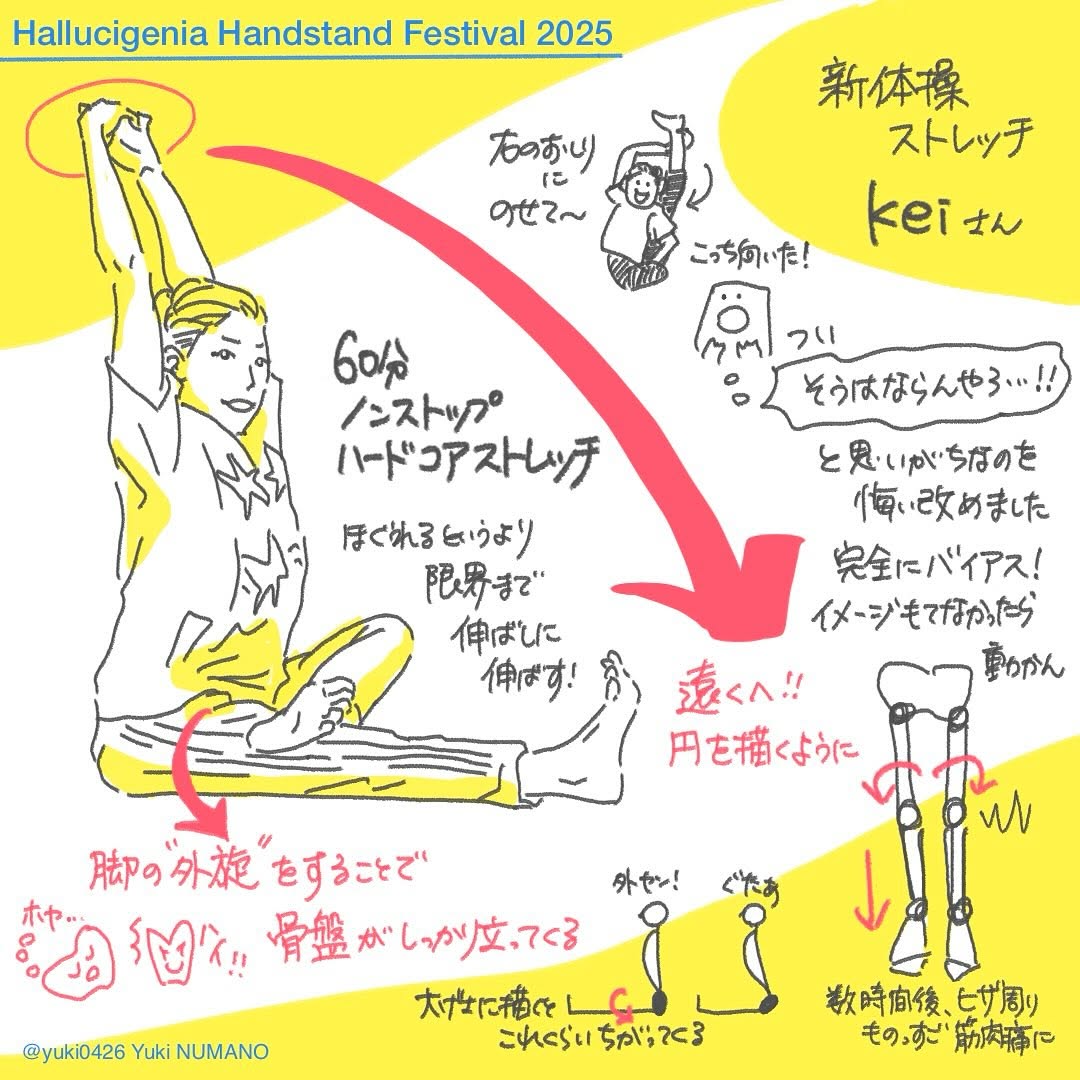 Hallucigenia Handstand Festival 2025
新体操
ストレッチ
keiさん
右のおしり
に
のせて〜
こっち向いた!
つい
そうはならんやろ…!!
と思いがちなのを
悔い改めました
完全にバイアス!
イメージもてなかったら
動かん
60分
ノンストップ
ハードコアストレッチ
ほぐれるというより
限界まで
伸ばしに
伸ばす!
遠くへ!!
円を描くように
脚の"外旋"をすることで
骨盤がしっかり立ってくる
ホヤ…
ハイ!!
外セン!
ぐたぁ
大げさに描くと
これくらいちがってくる
数時間後、ヒザ周り
ものっすご筋肉痛に
@yuki0426 Yuki NUMANO